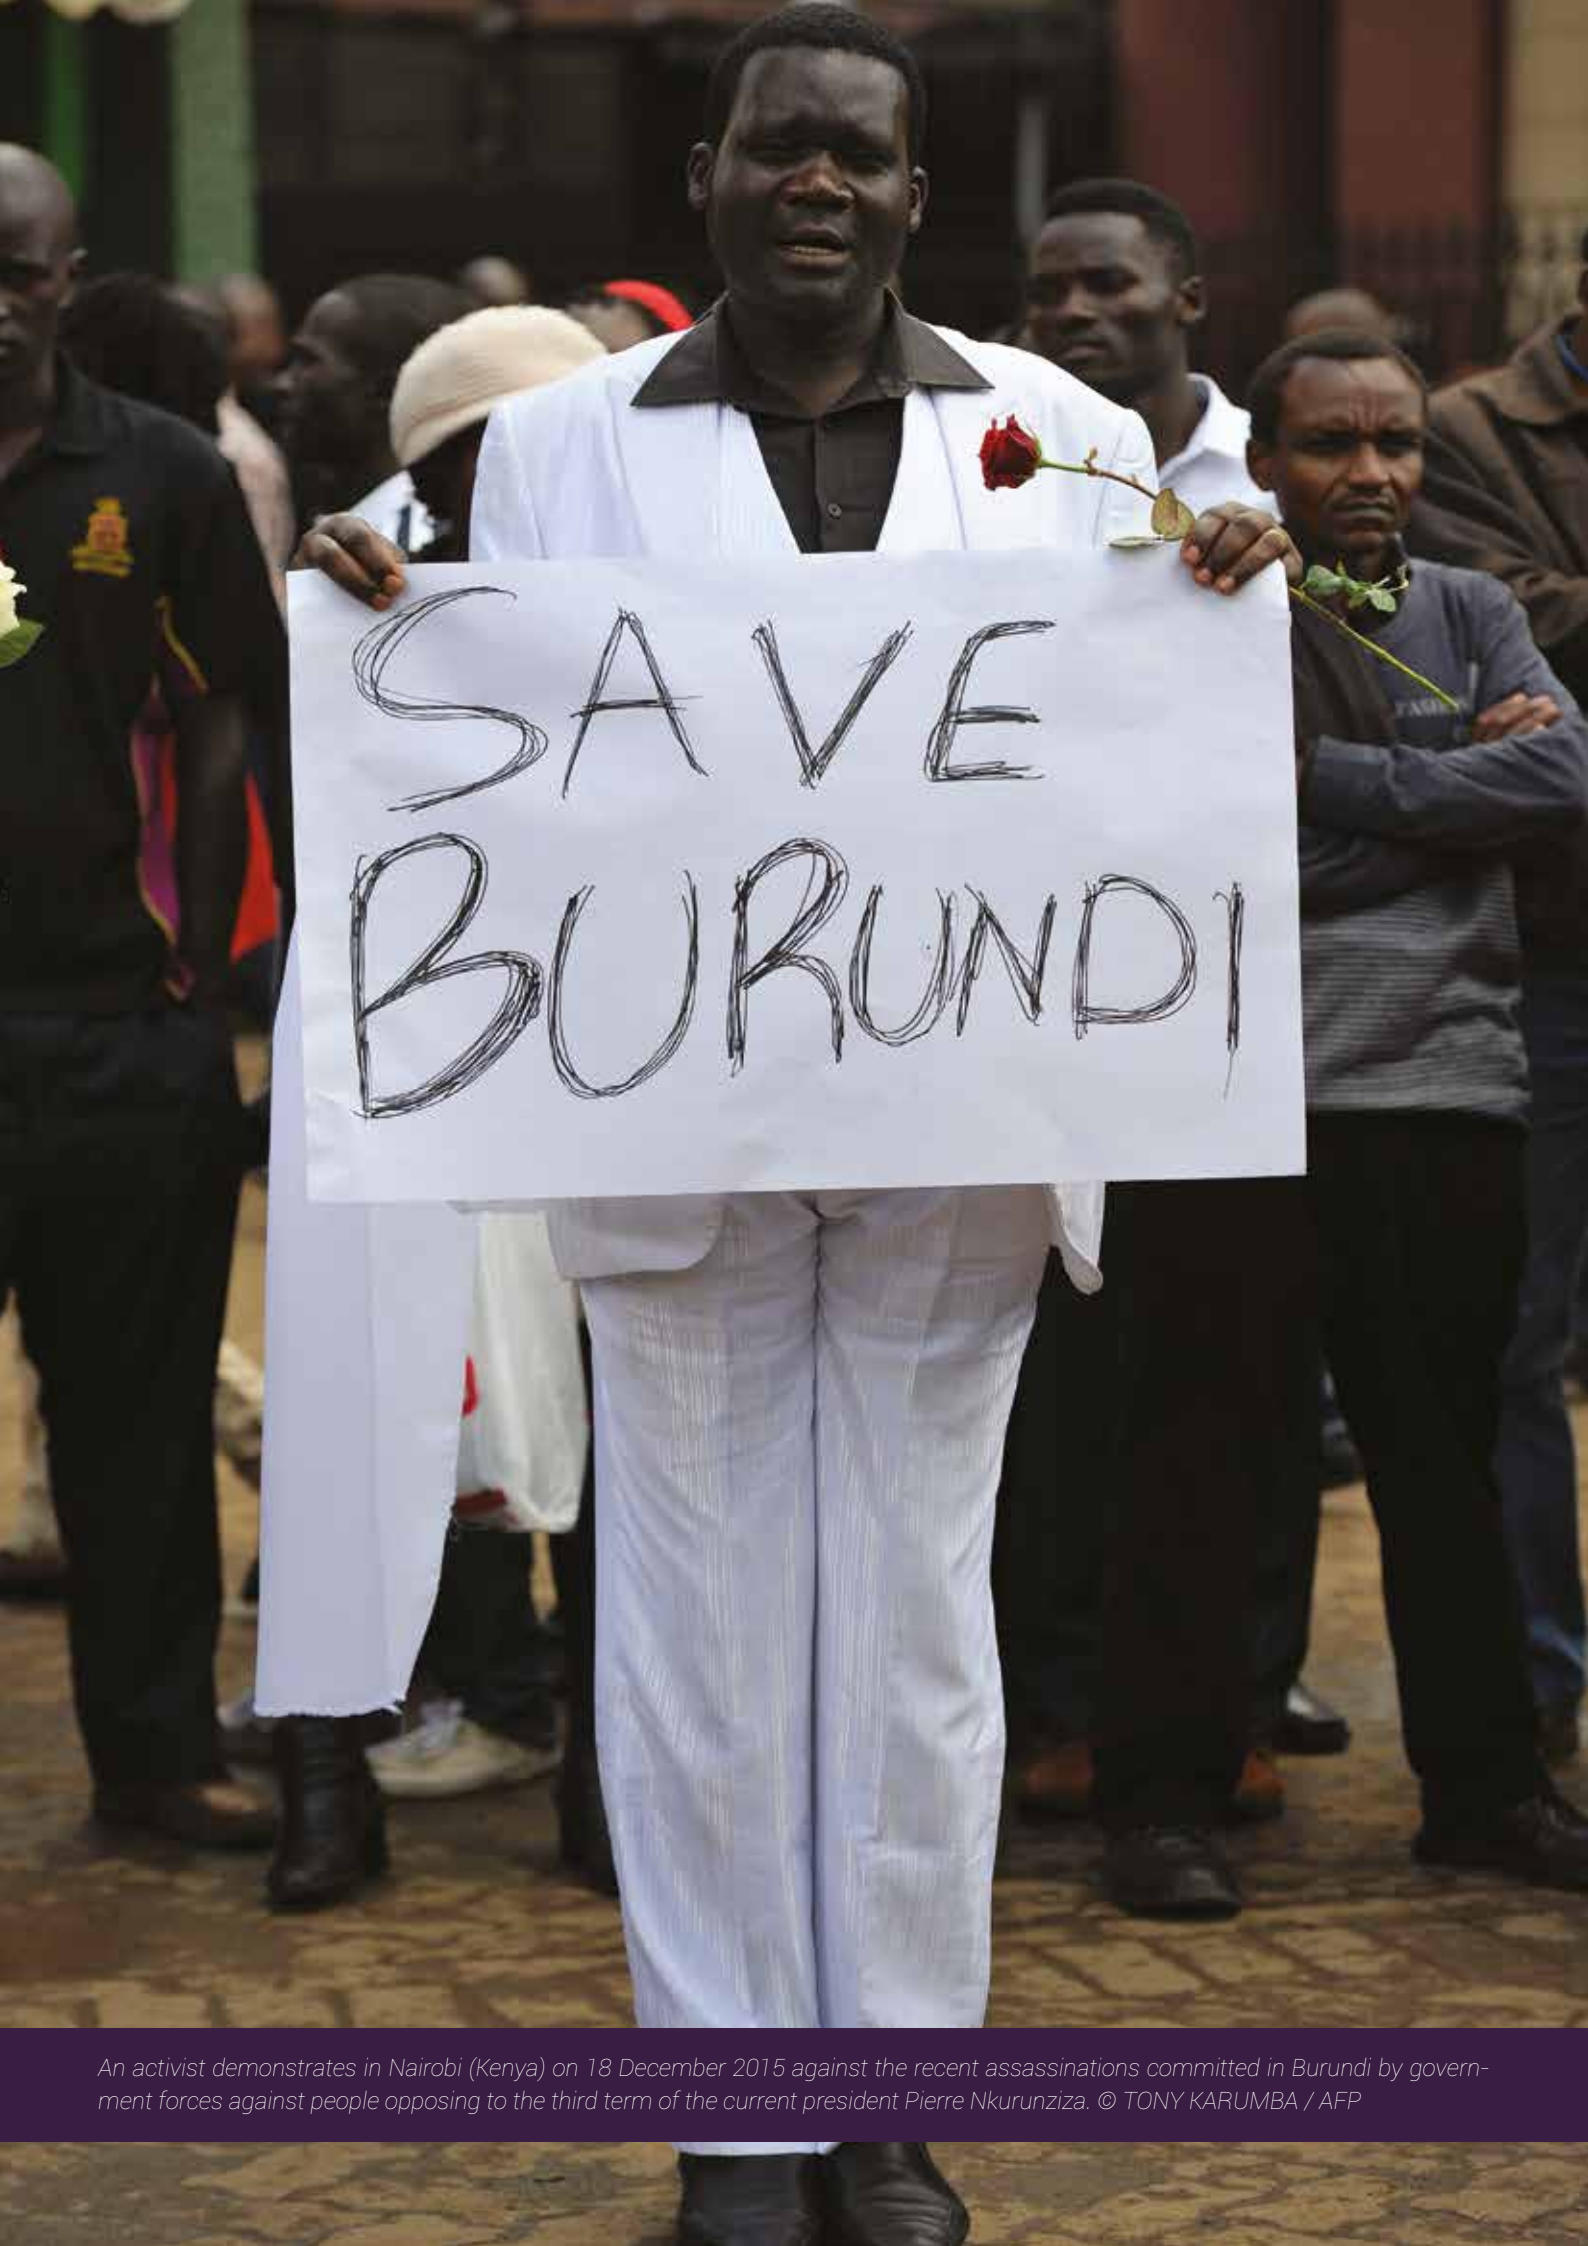 SAVE
BURUNDI
An activist demonstrates in Nairobi (Kenya) on 18 December 2015 against the recent assassinations committed in Burundi by govern-
ment forces against people opposing to the third term of the current president Pierre Nkurunziza. © TONY KARUMBA / AFP